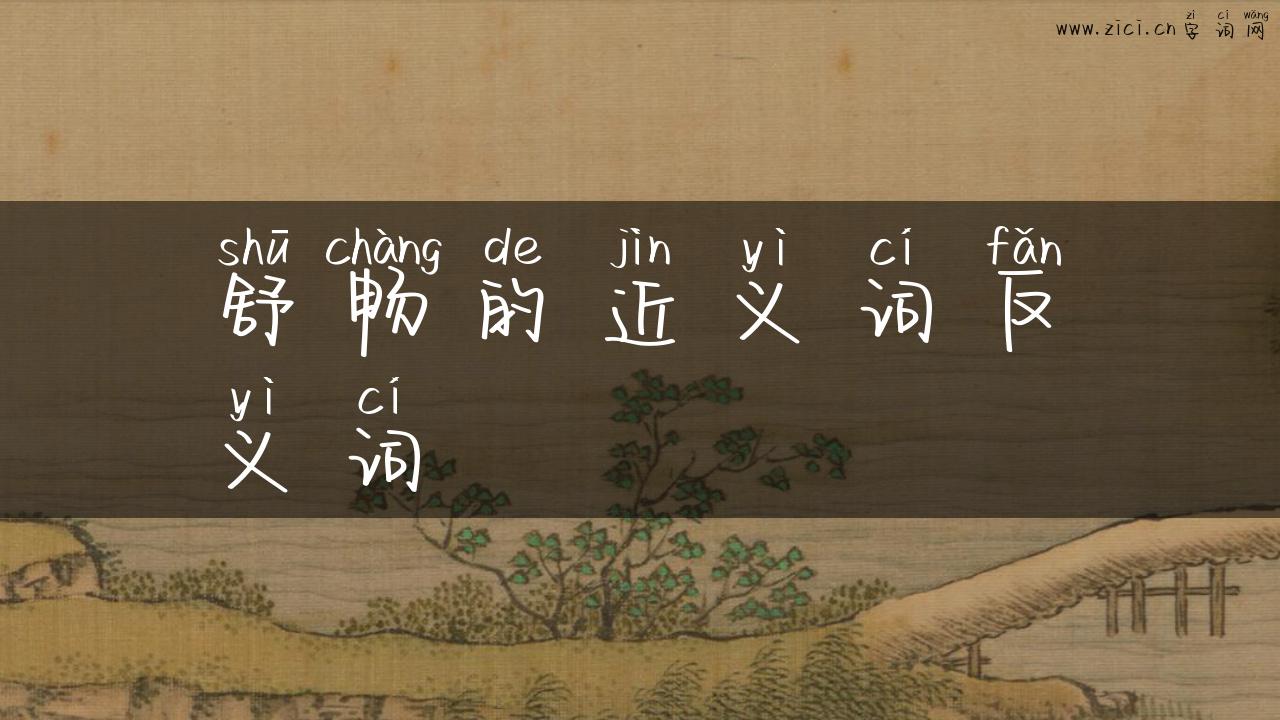 zì cí wǎng
www.zici.cn 字词网
shū chàng de jìn yì cí fǎn
舒畅的近义词反
yì cí
义词